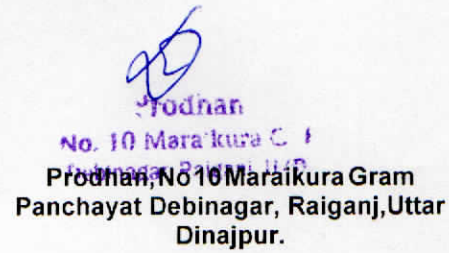 Prodhan
No. 10 Maraikura G. P
Debinagar, Raiganj, U/D
Prodhan,No10MaraikuraGram
Panchayat Debinagar, Raiganj,Uttar
Dinajpur.